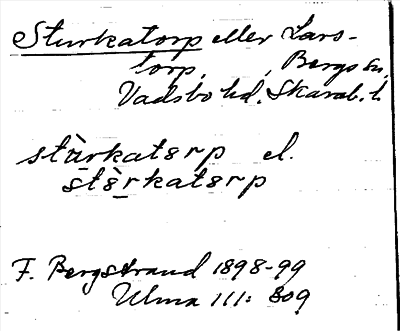 Sturkatorp eller Lars-
torp, Bergs sn,
Vadsbo hd. Skarab. l.
stùrkatɵrp el.
stɵ̀rkatɵrp
F. Bergstrand 1898-99
Ulma 111: 809